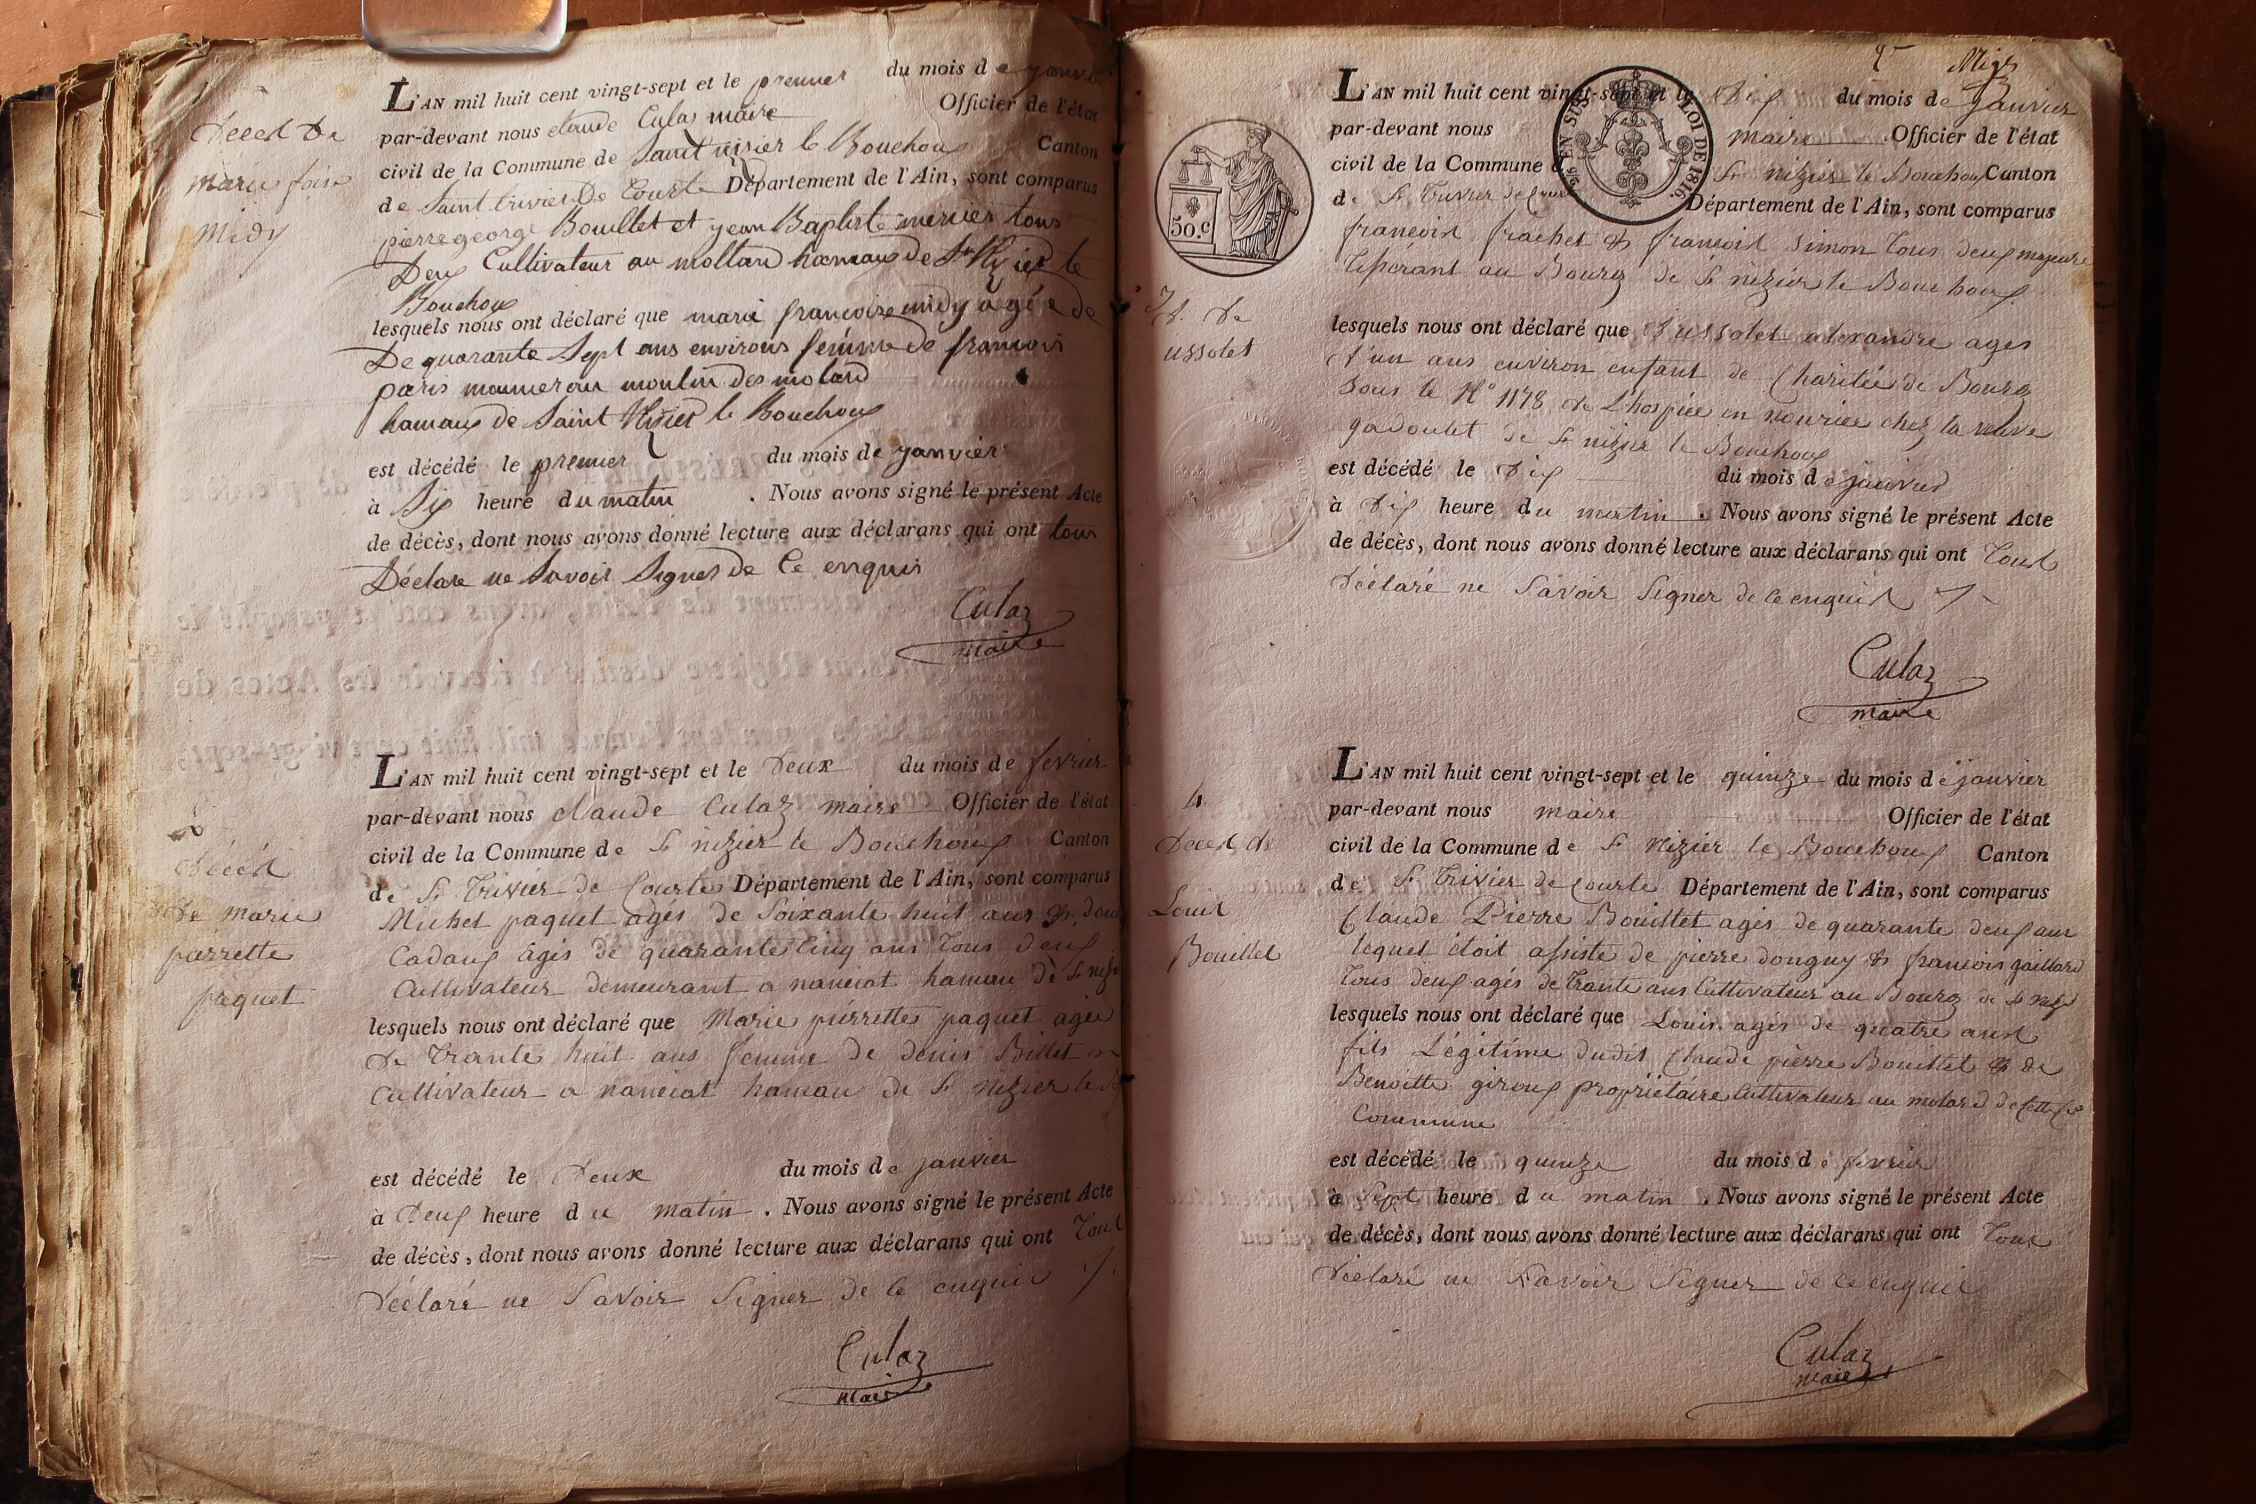 Deced De
marie foise
Midy
L'AN mil huit cent vingt-sept et le premier du mois de janvier
par-devant nous claude Culas maire Officier de l'état
civil de la Commune de Saint nisier le Bouchoux Canton
de Saint trivier De Courte Département de l'Ain, sont comparus
pierre george Bouillet et jean Baptiste mercier tous
Deux Cultivateur au mollard hameau de St Nizier le
Bouchoux
lesquels nous ont déclaré que marie francoise midy agée de
De quarante Sept ans environs femme de francois
paris meunier au moulin des molard
hamaux de Saint Nizier le Bouchoux
est décédé le premier du mois de janvier
à Six heure du matin . Nous avons signé le présent Acte
de décès, dont nous avons donné lecture aux déclarans qui ont tous
Déclare ne Savoir Signer de Ce enquis
Culaz
maire
2
décéd
De marie
pierrette
paquet
L'AN mil huit cent vingt-sept et le Deux du mois de fevrier
par-devant nous claude Culaz maire Officier de l'état
civil de la Commune de St nizier le Bouchoux Canton
de St Trivier de Courte Département de l'Ain, sont comparus
Michel paquet agés de Soixante huit ans &
Cadoux âgés de quarante Cinq ans Tous deux
Cultivateur demeurant a nanciat hamau de St
lesquels nous ont déclaré que Marie pierrette paquet agée
de Trante huit ans femme de denis Billet
Cultivateur a nanciat hamau de St nizier le
est décédé le Deux du mois de janvier
à Deux heure du matin . Nous avons signé le présent Acte
de décès, dont nous avons donné lecture aux déclarans qui ont Tous
Déclaré ne Savoir Signer de Ce enquis
Culaz
maire
2
LOI DE 1816
EN SUS
50.c
L'AN mil huit cent vingt-sept et le Dix du mois de Janvier
par-devant nous maire Officier de l'état
civil de la Commune St nizier le Bouchoux Canton
de St Trivier de Département de l'Ain, sont comparus
francois frachet & francois Simon Tous deux majeurs
au Bourg de St nizier le Bouchoux
De
ussolet
lesquels nous ont déclaré que Bussolet alexandre ages
d'un ans environ enfant de Charitée de Bourg
Sous le N° 1178 de L'hospice en nourice chez la veuve
gadoulet de St nizier le Bouchoux
est décédé le Dix du mois de janvier
à Dix heure du matin . Nous avons signé le présent Acte
de décès, dont nous avons donné lecture aux déclarans qui ont Tous
Déclaré ne Savoir Signer de ce enquis
Culaz
maire
4
Deced de
Louis
Bouillet
L'AN mil huit cent vingt-sept et le quinze du mois de janvier
par-devant nous maire Officier de l'état
civil de la Commune de St Nizier le Bouchoux Canton
de St Trivier de Courte Département de l'Ain, sont comparus
Claude Pierre Bouillet agés de quarante deux ans
lequel étoit assisté de pierre donguy & francois gaillard
Tous deux agés de Trante ans Cultivateur au Bourg de St
lesquels nous ont déclaré que Louis agés de quatre ans
fils Légitime dudit Claude pierre Bouillet & de
Benoitte giroux propriétaire Cultivateur au molard de Cette
Commune
est décédé le quinze du mois de fevrier
à Sept heure du matin . Nous avons signé le présent Acte
de décès, dont nous avons donné lecture aux déclarans qui ont Tous
Déclaré ne Savoir Signer de ce enquis
Culaz
maire